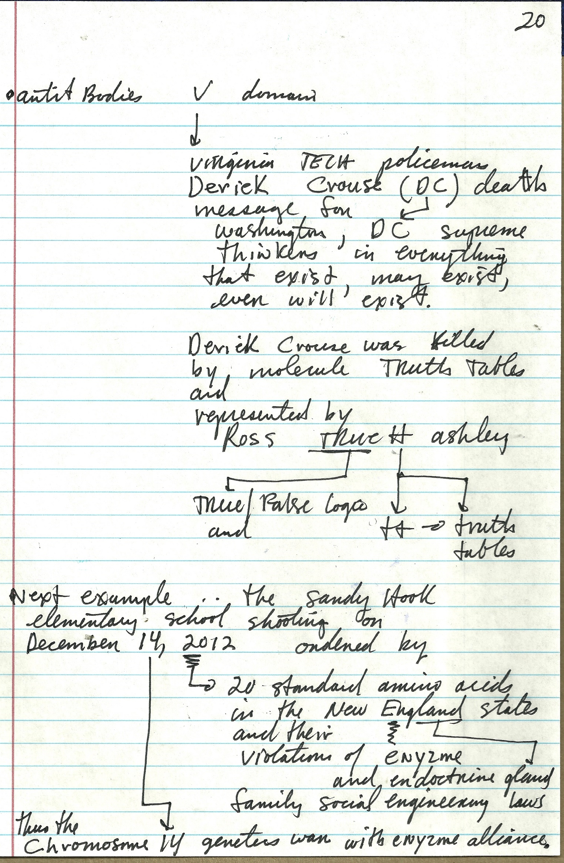 20
• antit Bodies V domain
Virginia TECH policeman
Derick Crouse (DC) death
message for
Washington, DC supreme
thinkers in everything
that exist, may exist,
even will exist.
Derick Crouse was killed
by molecule Truth Tables
and
represented by
Ross Truett ashley
True/False Logic
and tt → truth
tables
• Next example .. the Sandy Hook
elementary school shooting on
December 14, 2012 ondened by
20 standard amino acids
in the New England states
and their
violations of enyzme
and endoctrine gland
family social engineering laws
thus the
Chromosome 14 geneters war with enyzme alliance.